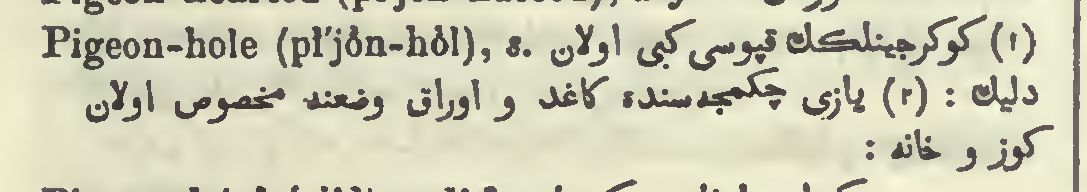 Pigeon-hole (pĭ'jŏn-hōl), s. (۱) كوكرجينلكك قپوسی كبی اولان
دليك : (۲) يازی چكمجه‌سنده كاغد و اوراق وضعنه مخصوص اولان
كوز و خانه :